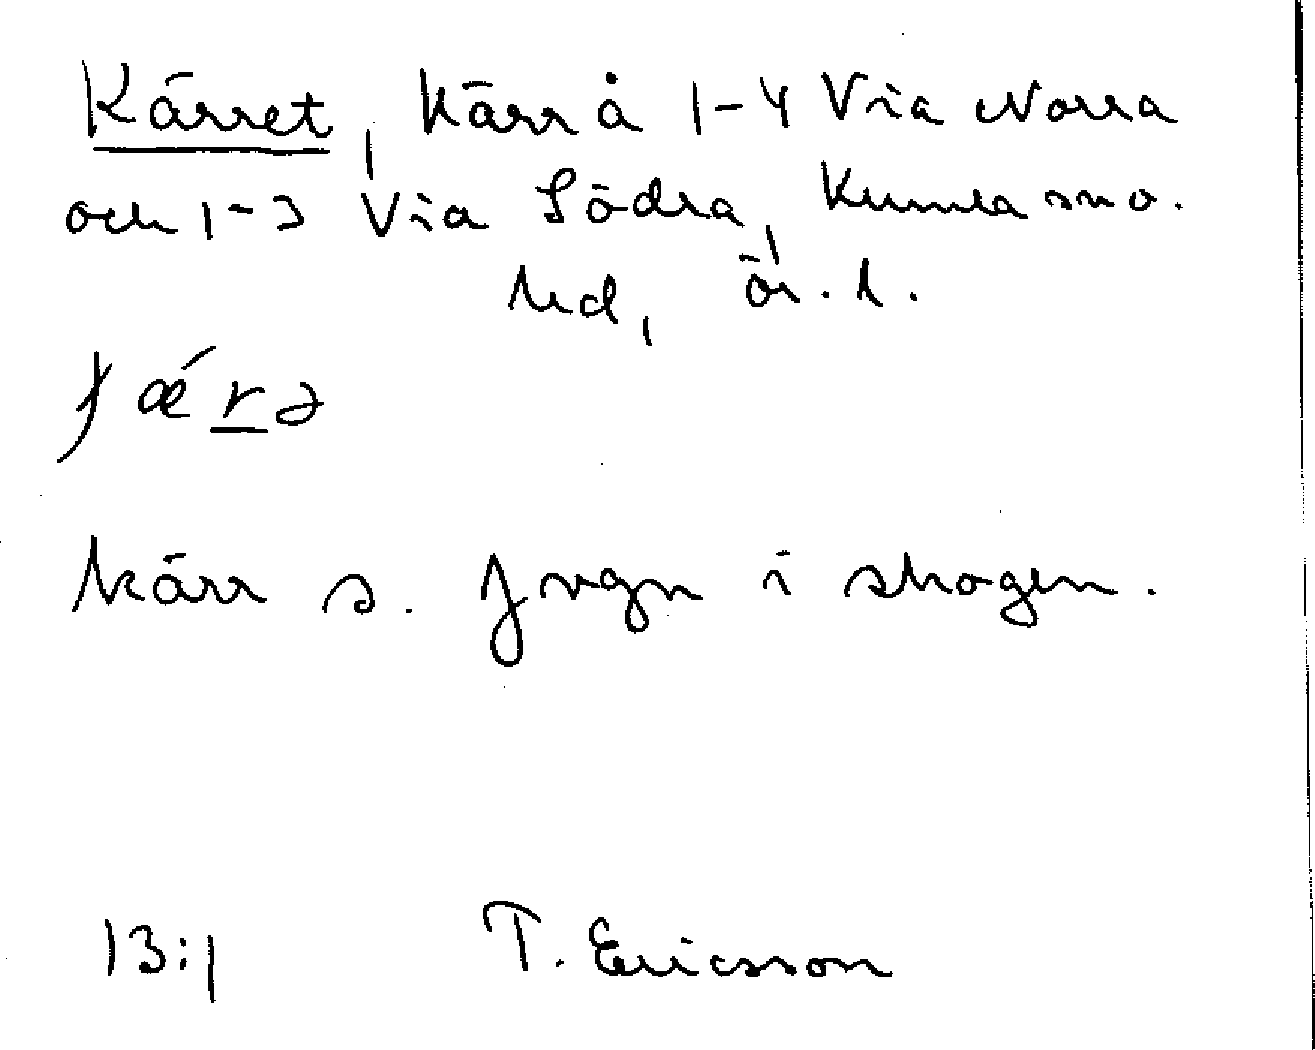 Kärret, kärr å 1-4 Via Norra
och 1-3 Via Södra, Kumla sno.
kd, ör. l.
ɟǽrə
kärr s. Jvgn i skogen.
13:1 T. Ericsson